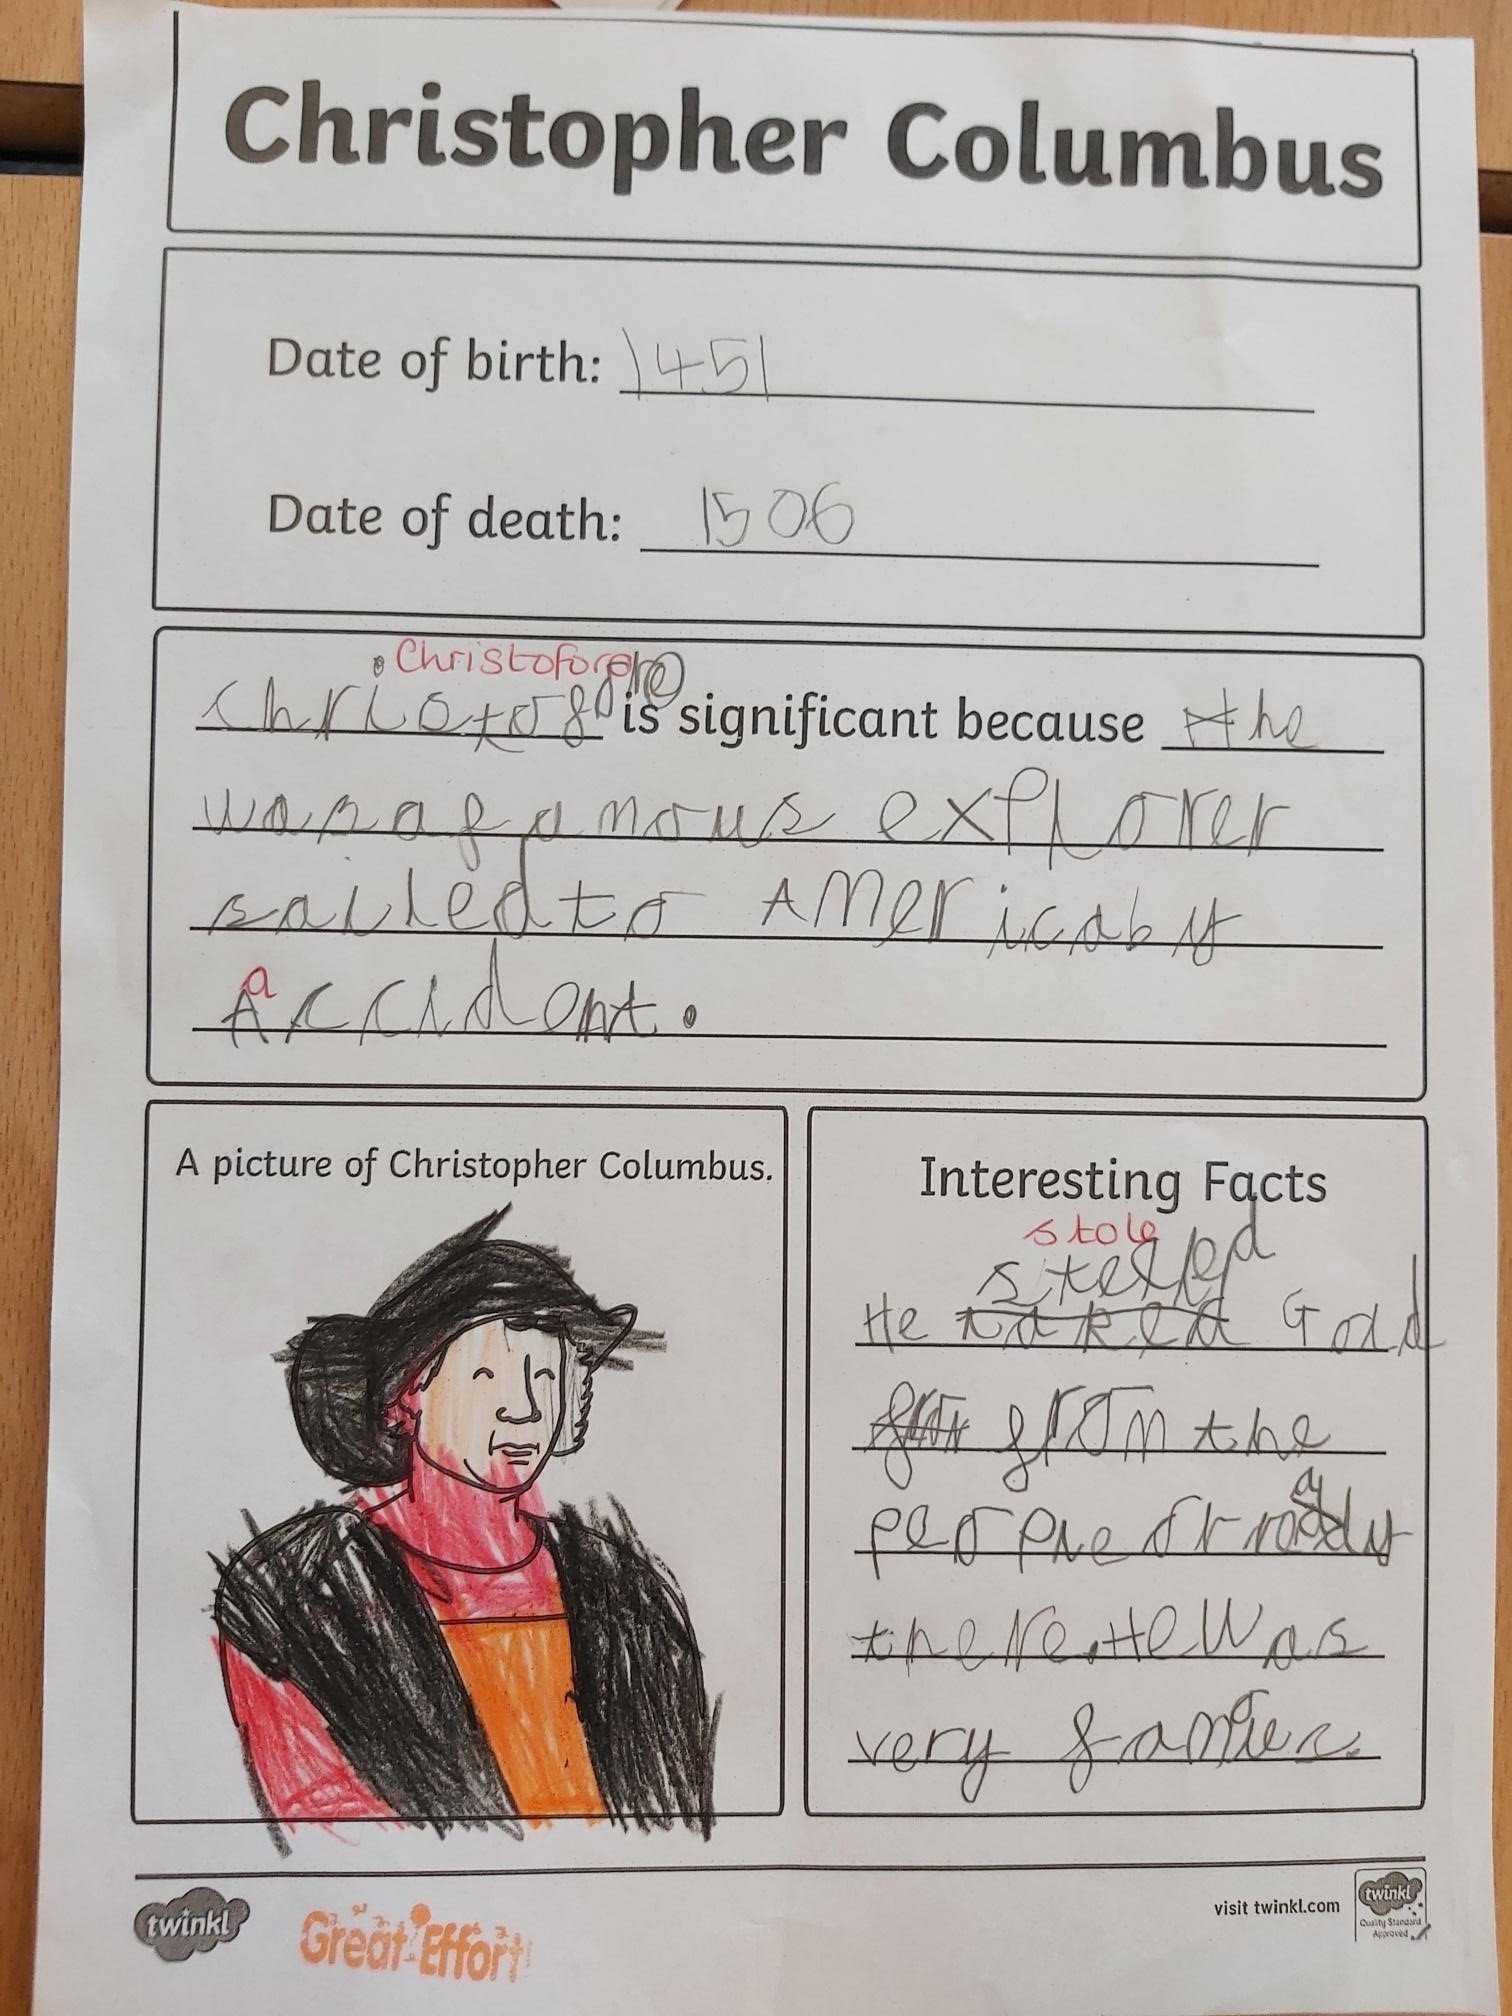 Christopher Columbus
Date of birth: 1451
Date of death: 1506
Christofore
christof is significant because the
was a famous explorer
sailed to AMericaby
a
Accident.
A picture of Christopher Columbus.
Interesting Facts
stole
steeled
He taked Gold
from from the
people orrady
there. He was
very famous.
twinkl
Great Effort
visit twinkl.com
twinkl
Quality Standard
Approved